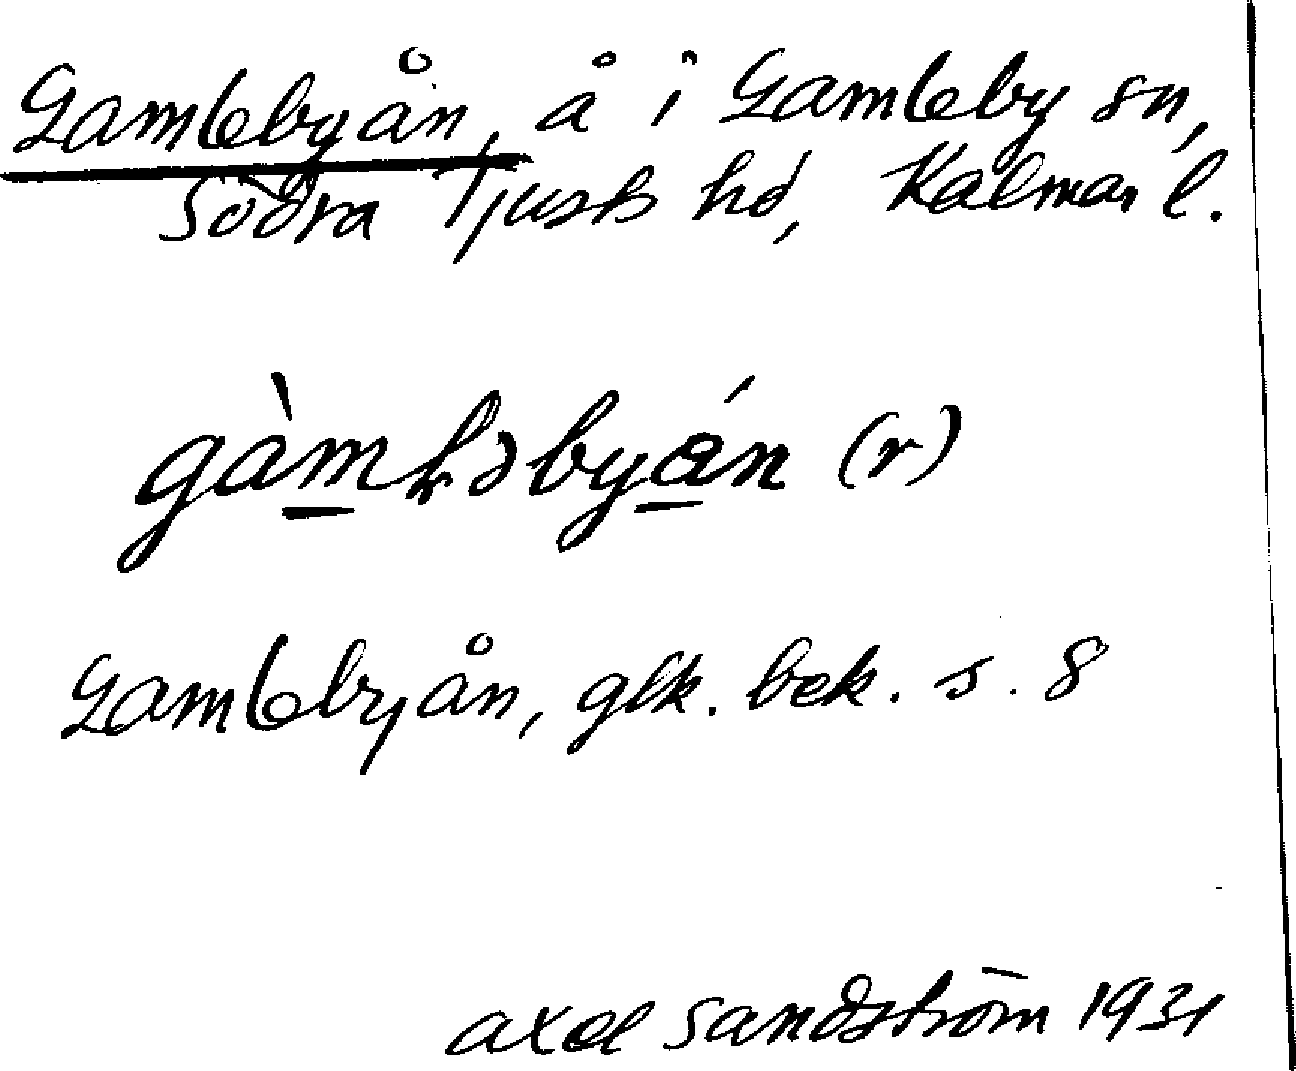 Gamlebyån, å i Gamleby sn,
Södra Tjusts hd, Kalmar l.
(r)
Gamlebyån, glk. bek. s. 8
Axel Sandström 1931